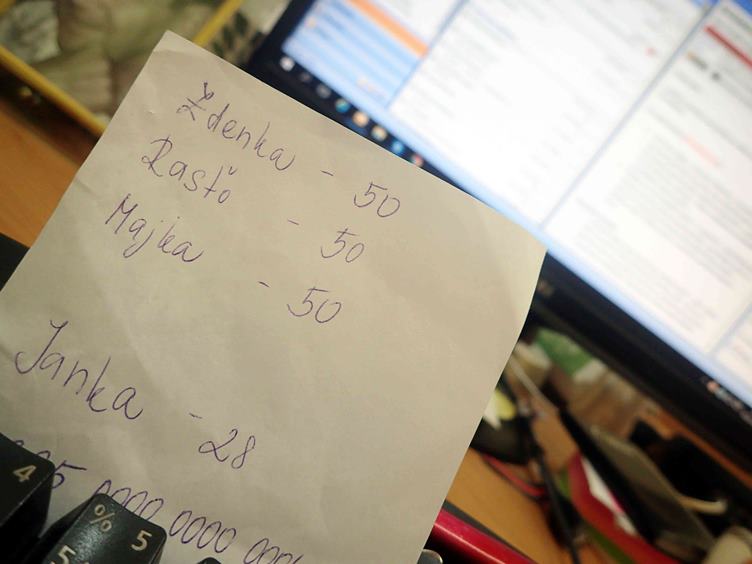 Zdenka - 50
Rasťo - 50
Majka - 50
Janka - 28
5 0000 0000
4
% 5
5